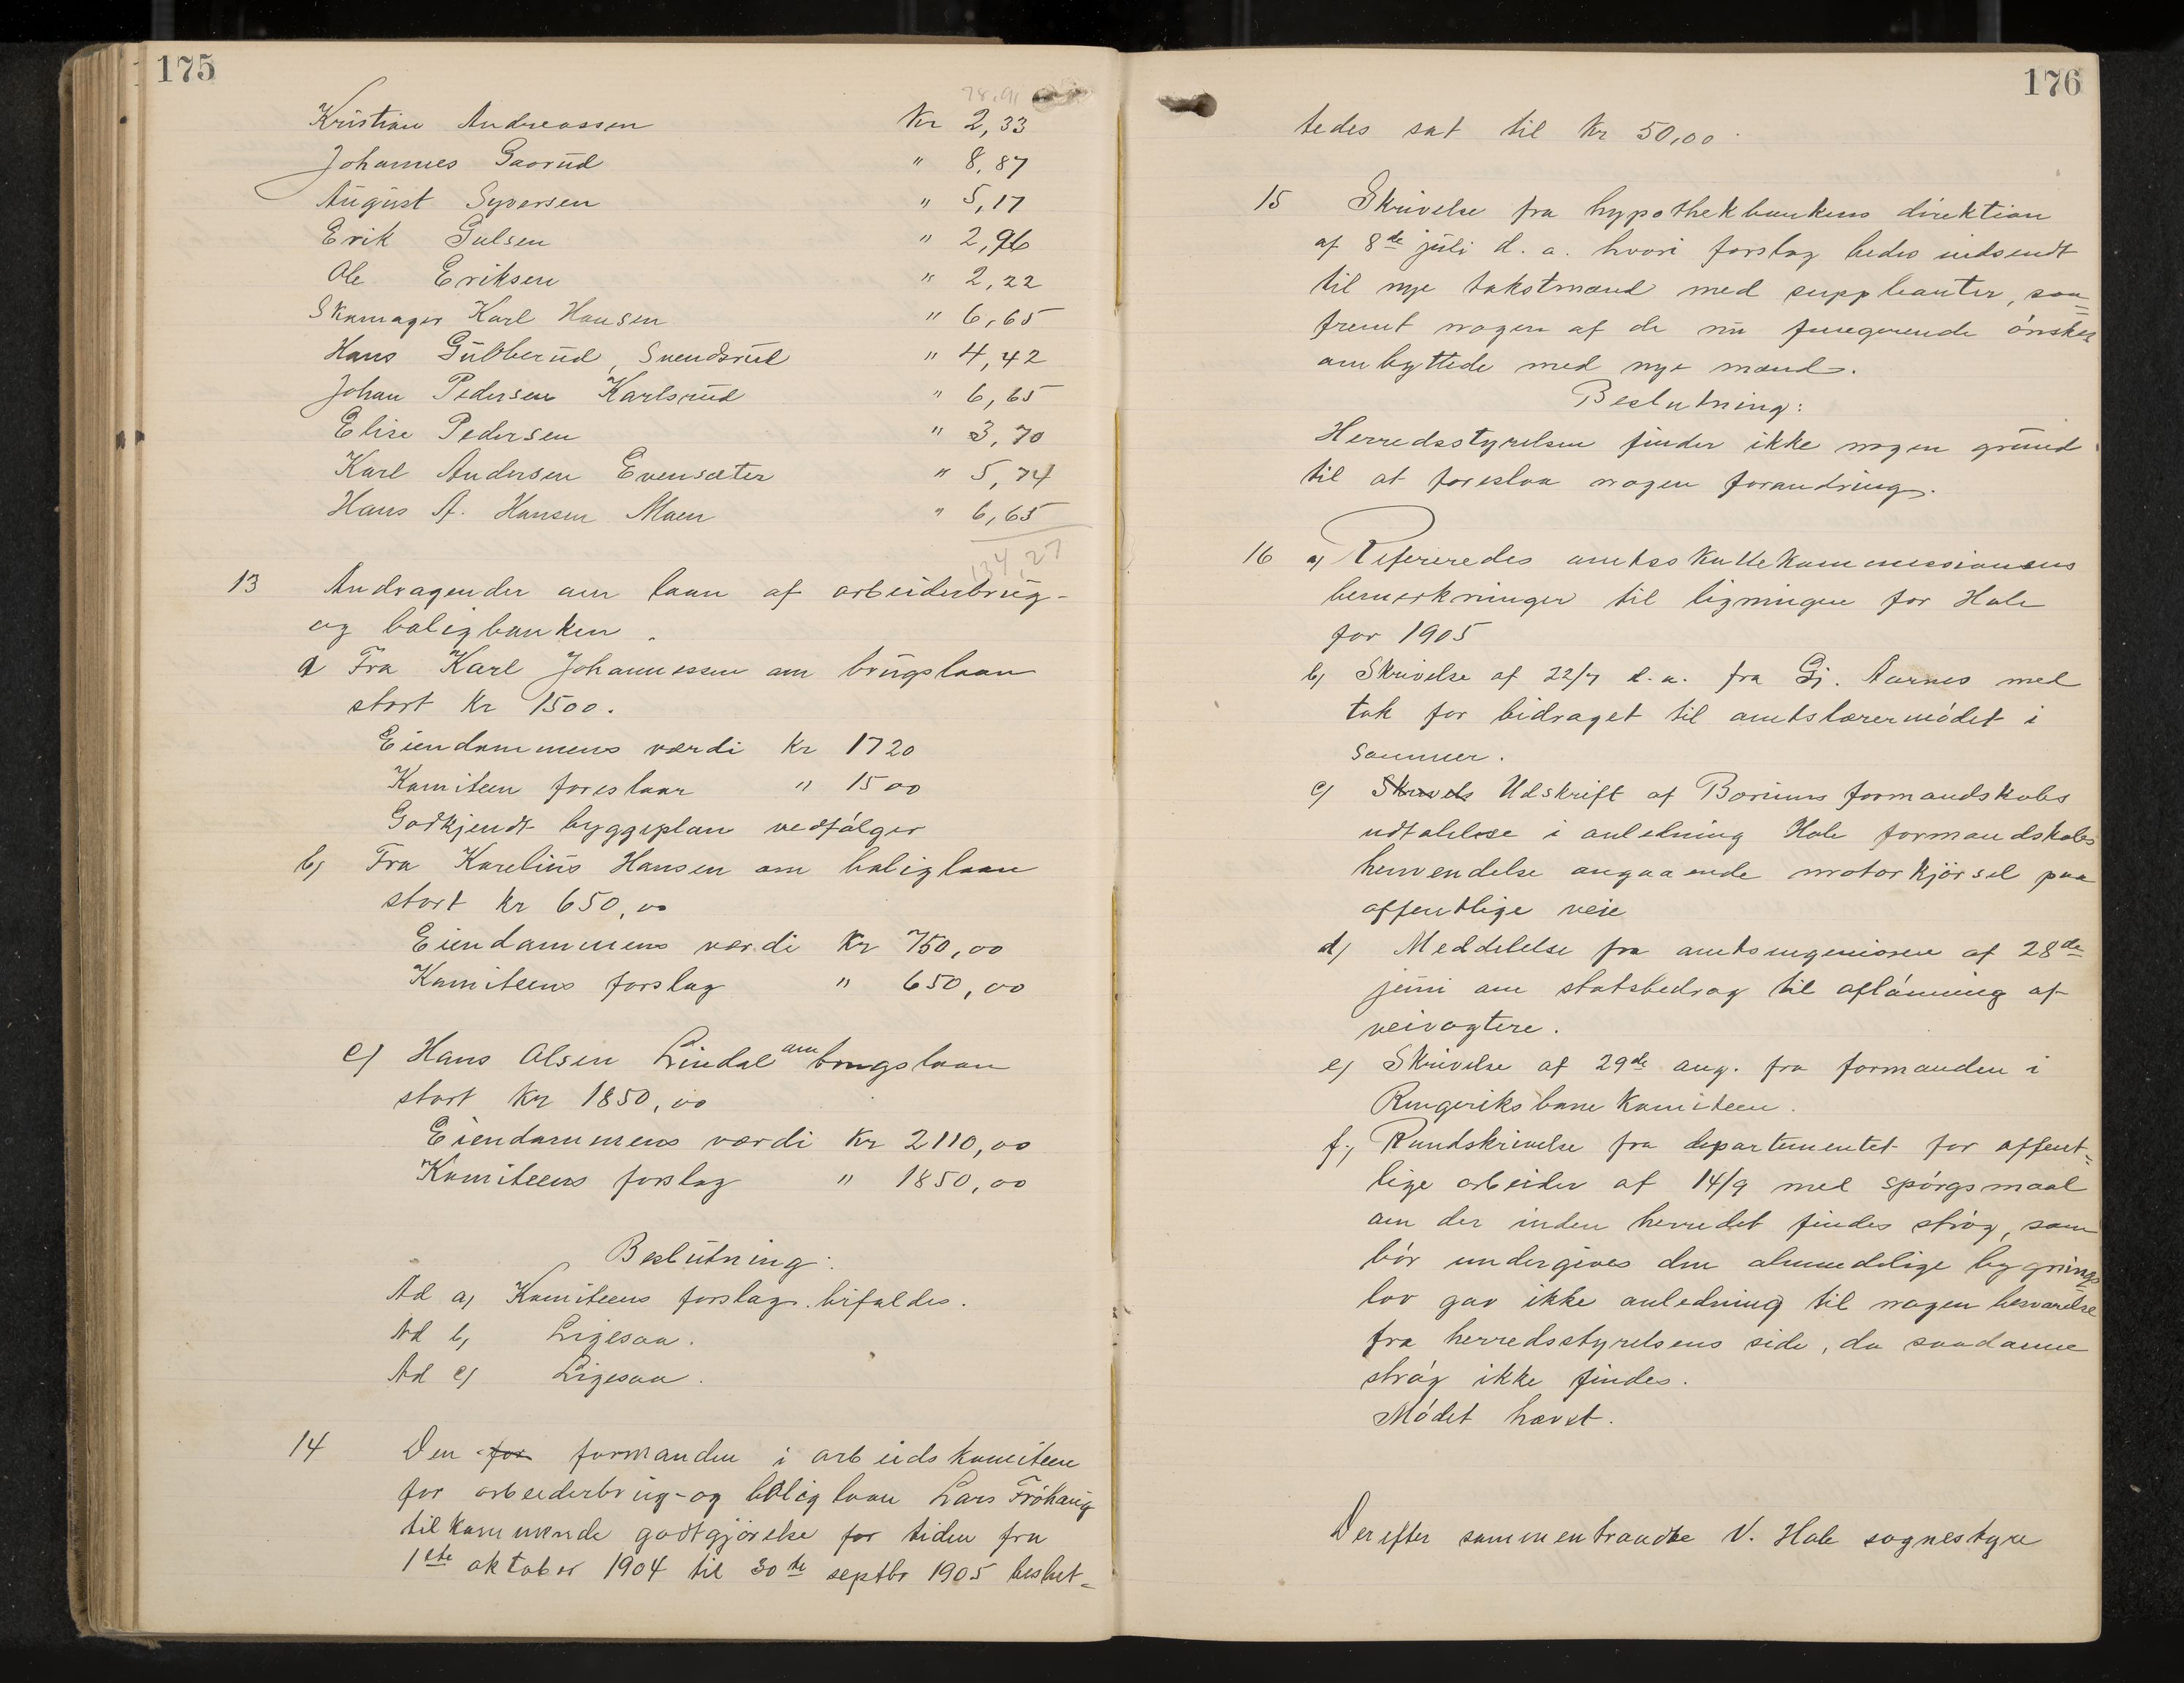 175
78,91
Kristian Andreassen Kr 2,33
Johannes Gaarud " 8,87
August Syversen " 5,17
Erik Gulsen " 2,96
Ole Eriksen " 2,22
Skomager Karl Hansen " 6,65
Hans Gulbberud, Svendsrud " 4,42
Johan Pedersen Karlsrud " 6,65
Elise Pedersen " 3,70
Karl Andersen Evensæter " 5,74
Hans A. Hansen Moen " 6,65
134,27
13 Andragender om laan af arbeiderbrug-
og boligbanken.
a Fra Karl Johannessen om brugslaan
stort Kr 1500.
Eiendommens værdi Kr 1720
Komiteen foreslaar " 1500
Godkjendt byggeplan vedfølger
b) Fra Karelius Hansen om boliglaan
stort Kr 650,00
Eiendommens værdi Kr 750,00
Komiteens forslag " 650,00
c) Hans Olsen Lindal om brugslaan
stort Kr 1850,00
Eiendommens værdi Kr 2110,00
Komiteens forslag " 1850,00
Beslutning:
Ad a) Komiteens forslag bifaldes.
Ad b) Ligesaa.
Ad c) Ligesaa.
14 Den for formanden i arbeidskomiteen
for arbeiderbrug- og boliglaan Lars Frøhaug
tilkommende godtgjørelse for tiden fra
1ste oktober 1904 til 30te septbr 1905 beslut-
176
tedes sat til Kr 50,00.
15 Skrivelse fra hypothekbankens direktion
af 8de juli d. a. hvori forslag bedes indsendt
til nye takstmænd med suppleanter, saa-
fremt nogen af de nu fungerende ønskes
ombyttede med nye mænd.
Beslutning:
Herredsstyrelsen finder ikke nogen grund
til at foreslaa nogen forandring.
16 a) Refereredes amtsskattekommissionens
bemerkninger til ligningen for Hole
for 1905
b) Skrivelse af 22/7 d.a. fra Gj. Aarnes med
tak for bidraget til amtslærermødet i
sommer.
c) Skrivels Udskrift af Bærums formandskabs
udtalelse i anledning Hole formandskabs
henvendelse angaaende motorkjørsel paa
offentlige veie
d) Meddelelse fra amtsingeniøren af 28de
juni om statsbedrag til aflønning af
veivogtere.
e) Skrivelse af 29de aug. fra formanden i
Ringeriksbanekomiteen.
f) Rundskrivelse fra departementet for offent-
lige arbeider af 14/9 med spørgsmaal
om der inden herredet findes strøg, som
bør undergives den almindelige bygnings-
lov gav ikke anledning til nogen besvarelse
fra herredsstyrelsens side, da saadanne
strøg ikke findes.
Mødet hævet.
Derefter sammentraadte N. Hole sognestyre